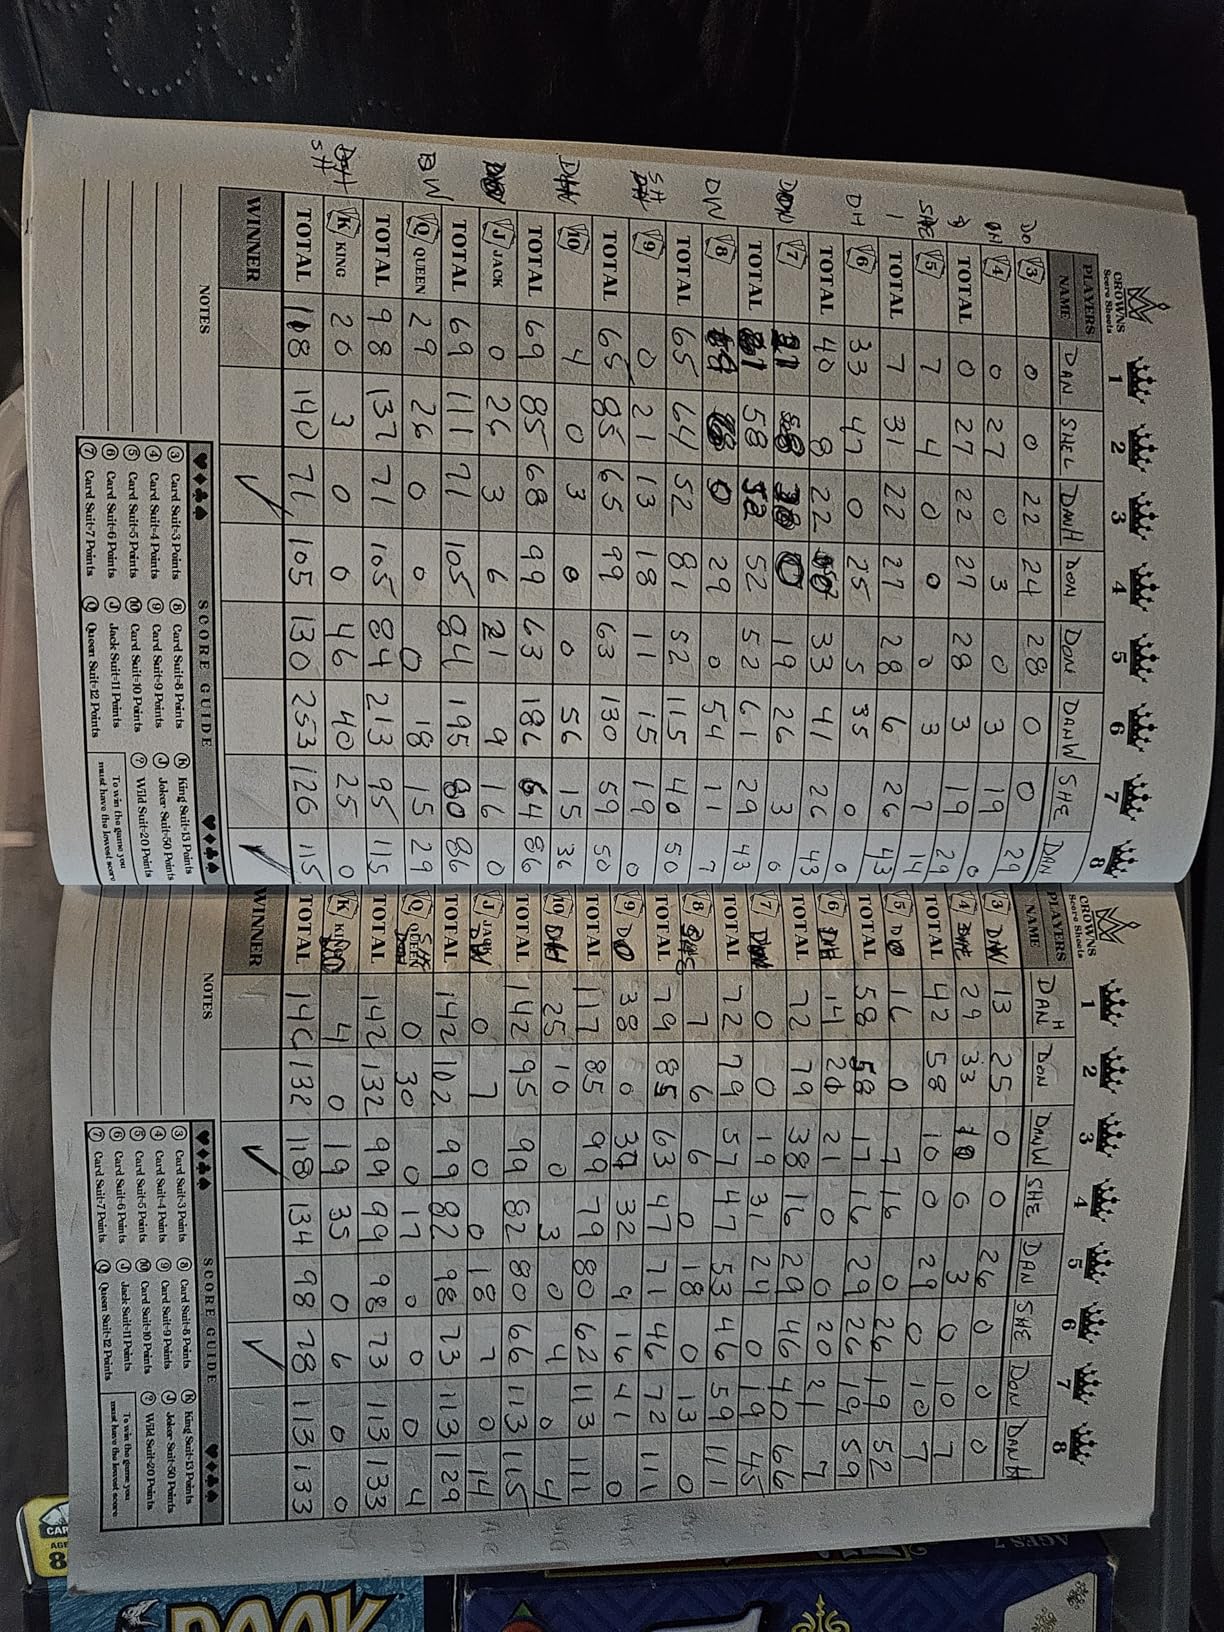 CROWNS
Score Sheets
1 2 3 4 5 6 7 8
PLAYERS NAME DAN SHEL DANH DON DON DANW SHE DAN
DO 3 0 0 22 24 28 0 0 29
DH 4 0 27 0 3 0 3 19 0
TOTAL 0 27 22 27 28 3 19 29
SHE 5 7 4 0 0 0 3 7 14
TOTAL 7 31 22 27 28 6 26 43
DH 6 33 47 0 25 5 35 0 0
TOTAL 40 8 22 33 41 26 43
7 0 19 26 3 0
TOTAL 58 52 52 52 61 29 43
DW 8 0 29 0 54 11 7
TOTAL 65 64 52 81 52 115 40 50
SH 9 0 21 13 18 11 15 19 0
TOTAL 65 85 65 99 63 130 59 50
10 4 0 3 0 0 56 15 36
TOTAL 69 85 68 99 63 186 64 86
J JACK 0 26 3 6 21 9 16 0
TOTAL 69 111 71 105 84 195 80 86
DW Q QUEEN 29 26 0 0 0 18 15 29
TOTAL 98 137 71 105 84 213 95 115
SH K KING 20 3 0 0 46 40 25 0
TOTAL 118 140 71 105 130 253 126 115
WINNER ✓ ✓
NOTES
SCORE GUIDE
3 Card Suit=3 Points
4 Card Suit=4 Points
5 Card Suit=5 Points
6 Card Suit=6 Points
7 Card Suit=7 Points
8 Card Suit=8 Points
9 Card Suit=9 Points
10 Card Suit=10 Points
J Jack Suit=11 Points
Q Queen Suit=12 Points
K King Suit=13 Points
J Joker Suit=50 Points
? Wild Suit=20 Points
To win the game you
must have the lowest score
CROWNS
Score Sheets
1 2 3 4 5 6 7 8
PLAYERS NAME DANH DON DANW SHE DAN SHE DON DANH
3 DW 13 25 0 0 26 0 0 0
4 SHE 29 33 10 6 3 0 10 7
TOTAL 42 58 10 0 29 0 10 7
5 DO 16 0 7 16 0 26 19 52
TOTAL 58 58 17 16 29 26 19 59
6 DH 14 21 0 0 20 21 7
TOTAL 72 79 38 16 29 46 40 66
7 0 0 19 31 24 0 19 45
TOTAL 72 79 57 47 53 46 59 111
8 SHE 7 6 6 0 18 0 13 0
TOTAL 79 85 63 47 71 46 72 111
9 DO 38 0 32 9 16 41 0
TOTAL 117 85 99 79 80 62 113 111
10 DH 25 10 0 3 0 4 0 4
TOTAL 142 95 99 82 80 66 113 115
J JACK 0 7 0 0 18 7 0 14
TOTAL 142 102 99 82 98 73 113 129
Q QUEEN 0 30 0 17 0 0 0 4
TOTAL 142 132 99 99 98 73 113 133
K KING 4 0 19 35 0 6 0 0
TOTAL 146 132 118 134 98 78 113 133
WINNER ✓ ✓
NOTES
SCORE GUIDE
3 Card Suit=3 Points
4 Card Suit=4 Points
5 Card Suit=5 Points
6 Card Suit=6 Points
7 Card Suit=7 Points
8 Card Suit=8 Points
9 Card Suit=9 Points
10 Card Suit=10 Points
J Jack Suit=11 Points
Q Queen Suit=12 Points
K King Suit=13 Points
J Joker Suit=50 Points
? Wild Suit=20 Points
To win the game you
must have the lowest score
AGES 7
ROOK
CAR
AGE
8